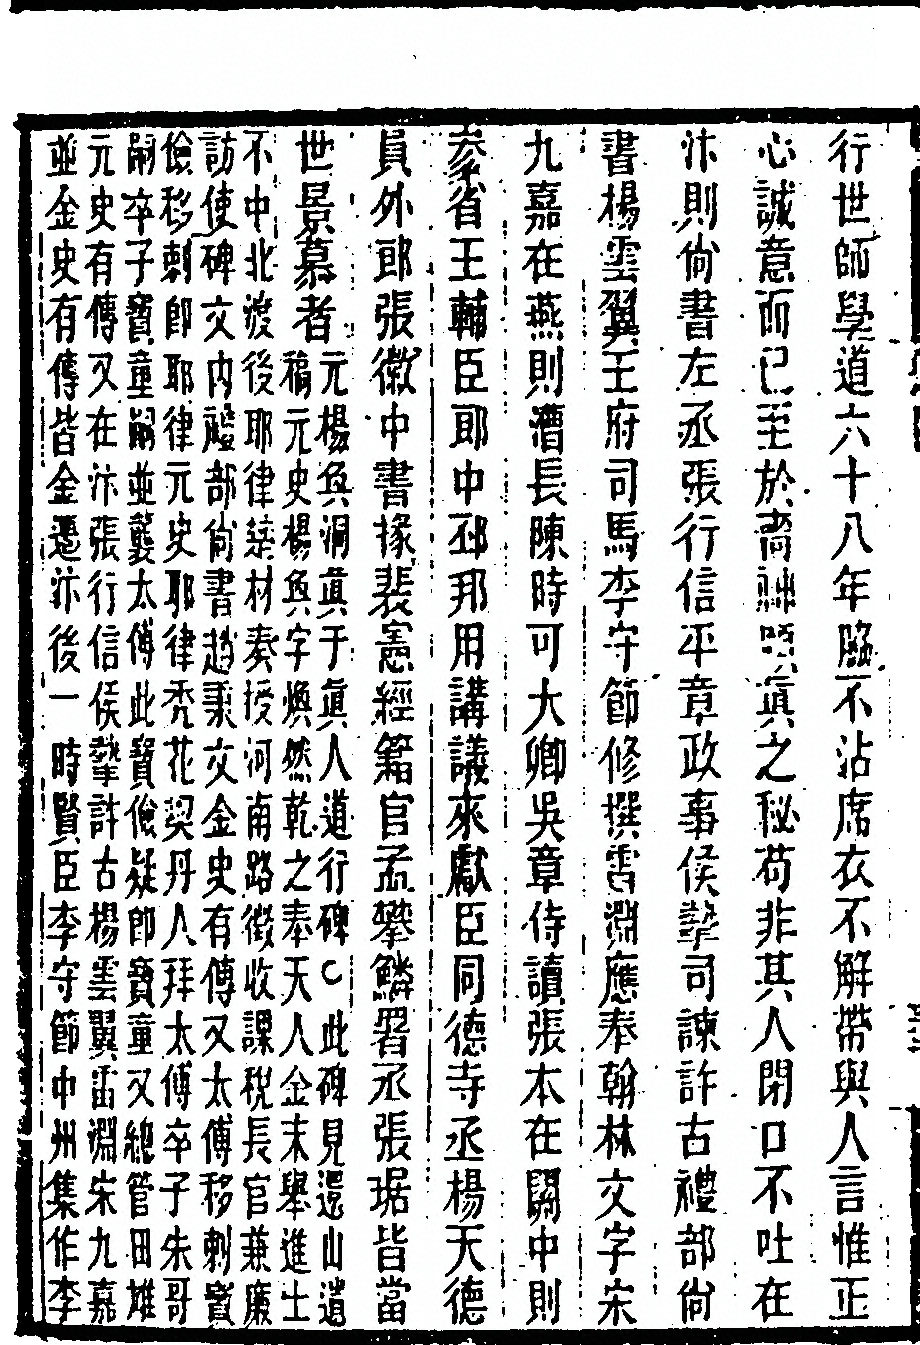 行世師學道六十八年脇不沾席衣不解帶與人言惟正
心誠意而已至於齋神頤眞之秘苟非其人閉口不吐在
汴則尙書左丞張行信平章政事侯摯司諫許古禮部尙
書楊雲翼王府司馬李守節修撰雷淵應奉翰林文字宋
九嘉在燕則漕長陳時可大卿吳章侍讀張本在關中則
叅省王輔臣郎中邳邦用講議來獻臣同德寺丞楊天德
員外郎張徽中書掾裴憲經籍官孟攀鱗署丞張琚皆當
世景慕者
元楊奐洞眞于眞人道行碑此碑見還山遺
稿元史楊奐字煥然乾之奉天人金末舉進士
不中北渡後耶律楚材奏授河南路徵收課稅長官兼廉
訪使碑文內禮部尙書趙秉文金史有傳又太傅移剌寳
儉移剌卽耶律元史耶律禿花契丹人拜太傅卒子朱哥
嗣卒子寳童嗣並襲太傅此寳儉疑卽寳童又總管田雄
元史有傳又在汴張行信侯摯許古楊雲翼雷淵宋九嘉
並金史有傳皆金遷汴後一時賢臣李守節中州集作李